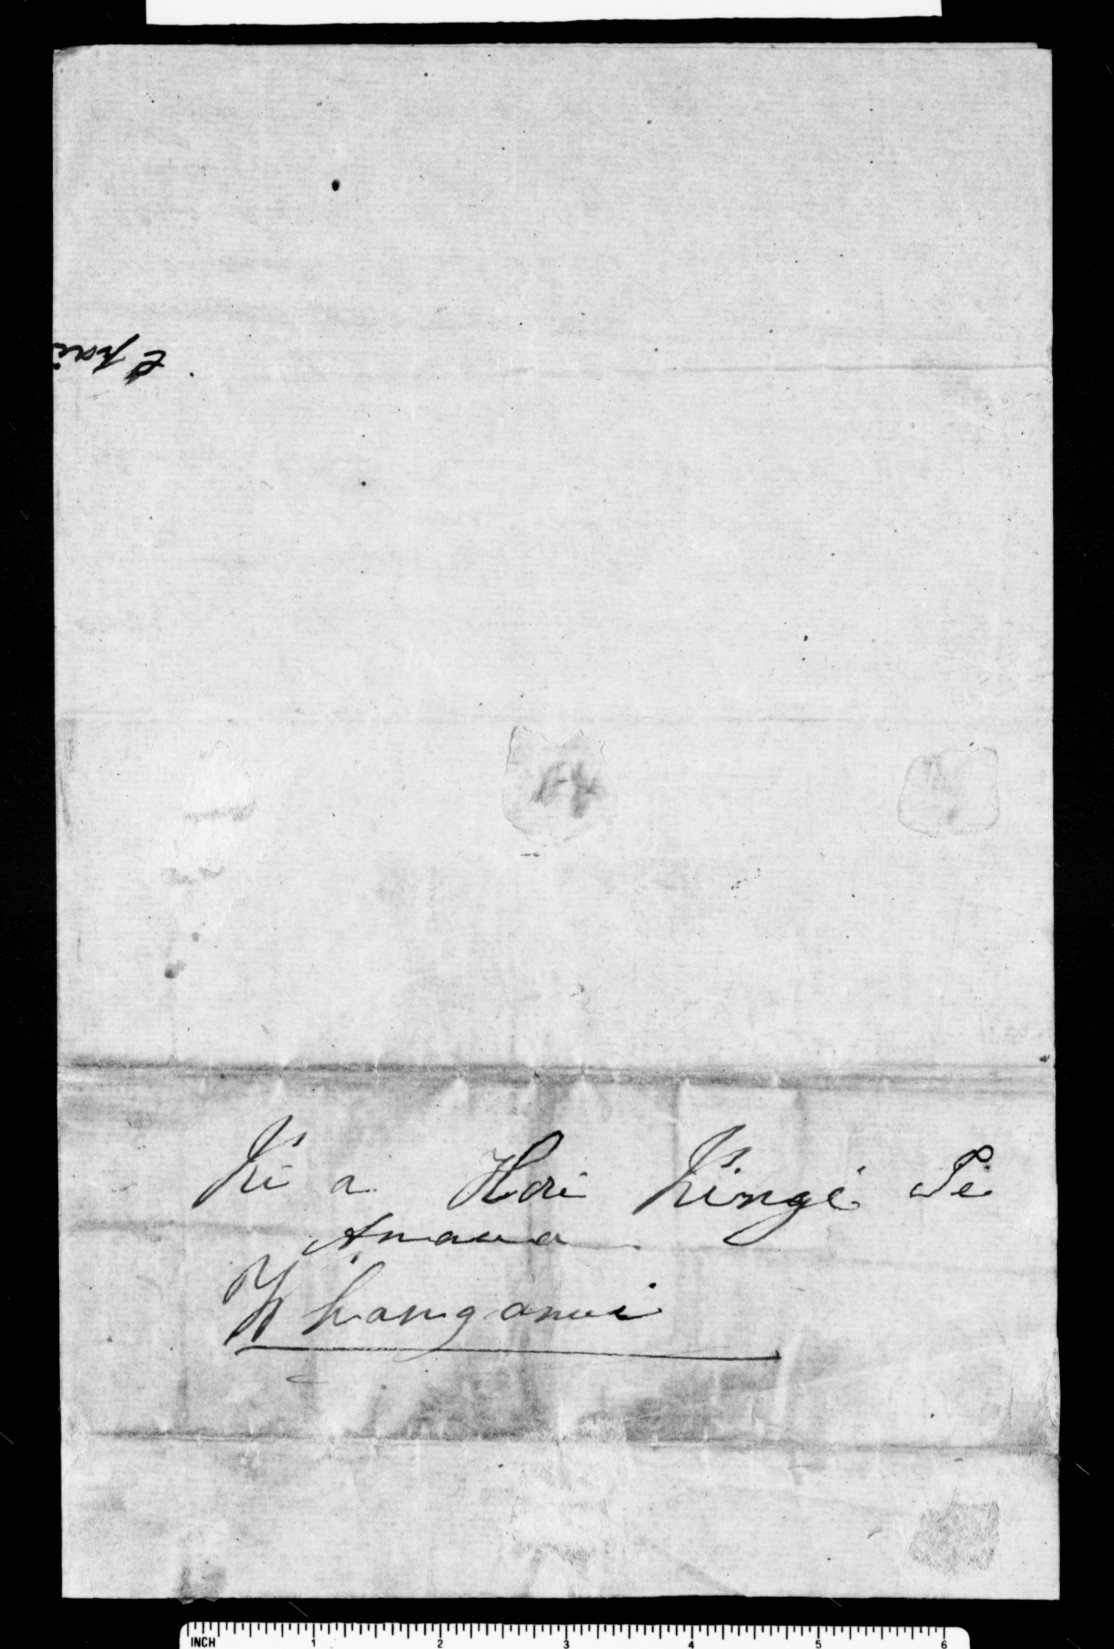 e pai
Ki a Hori Kingi Te
Anaua
Whanganui
INCH 1 2 3 4 5 6